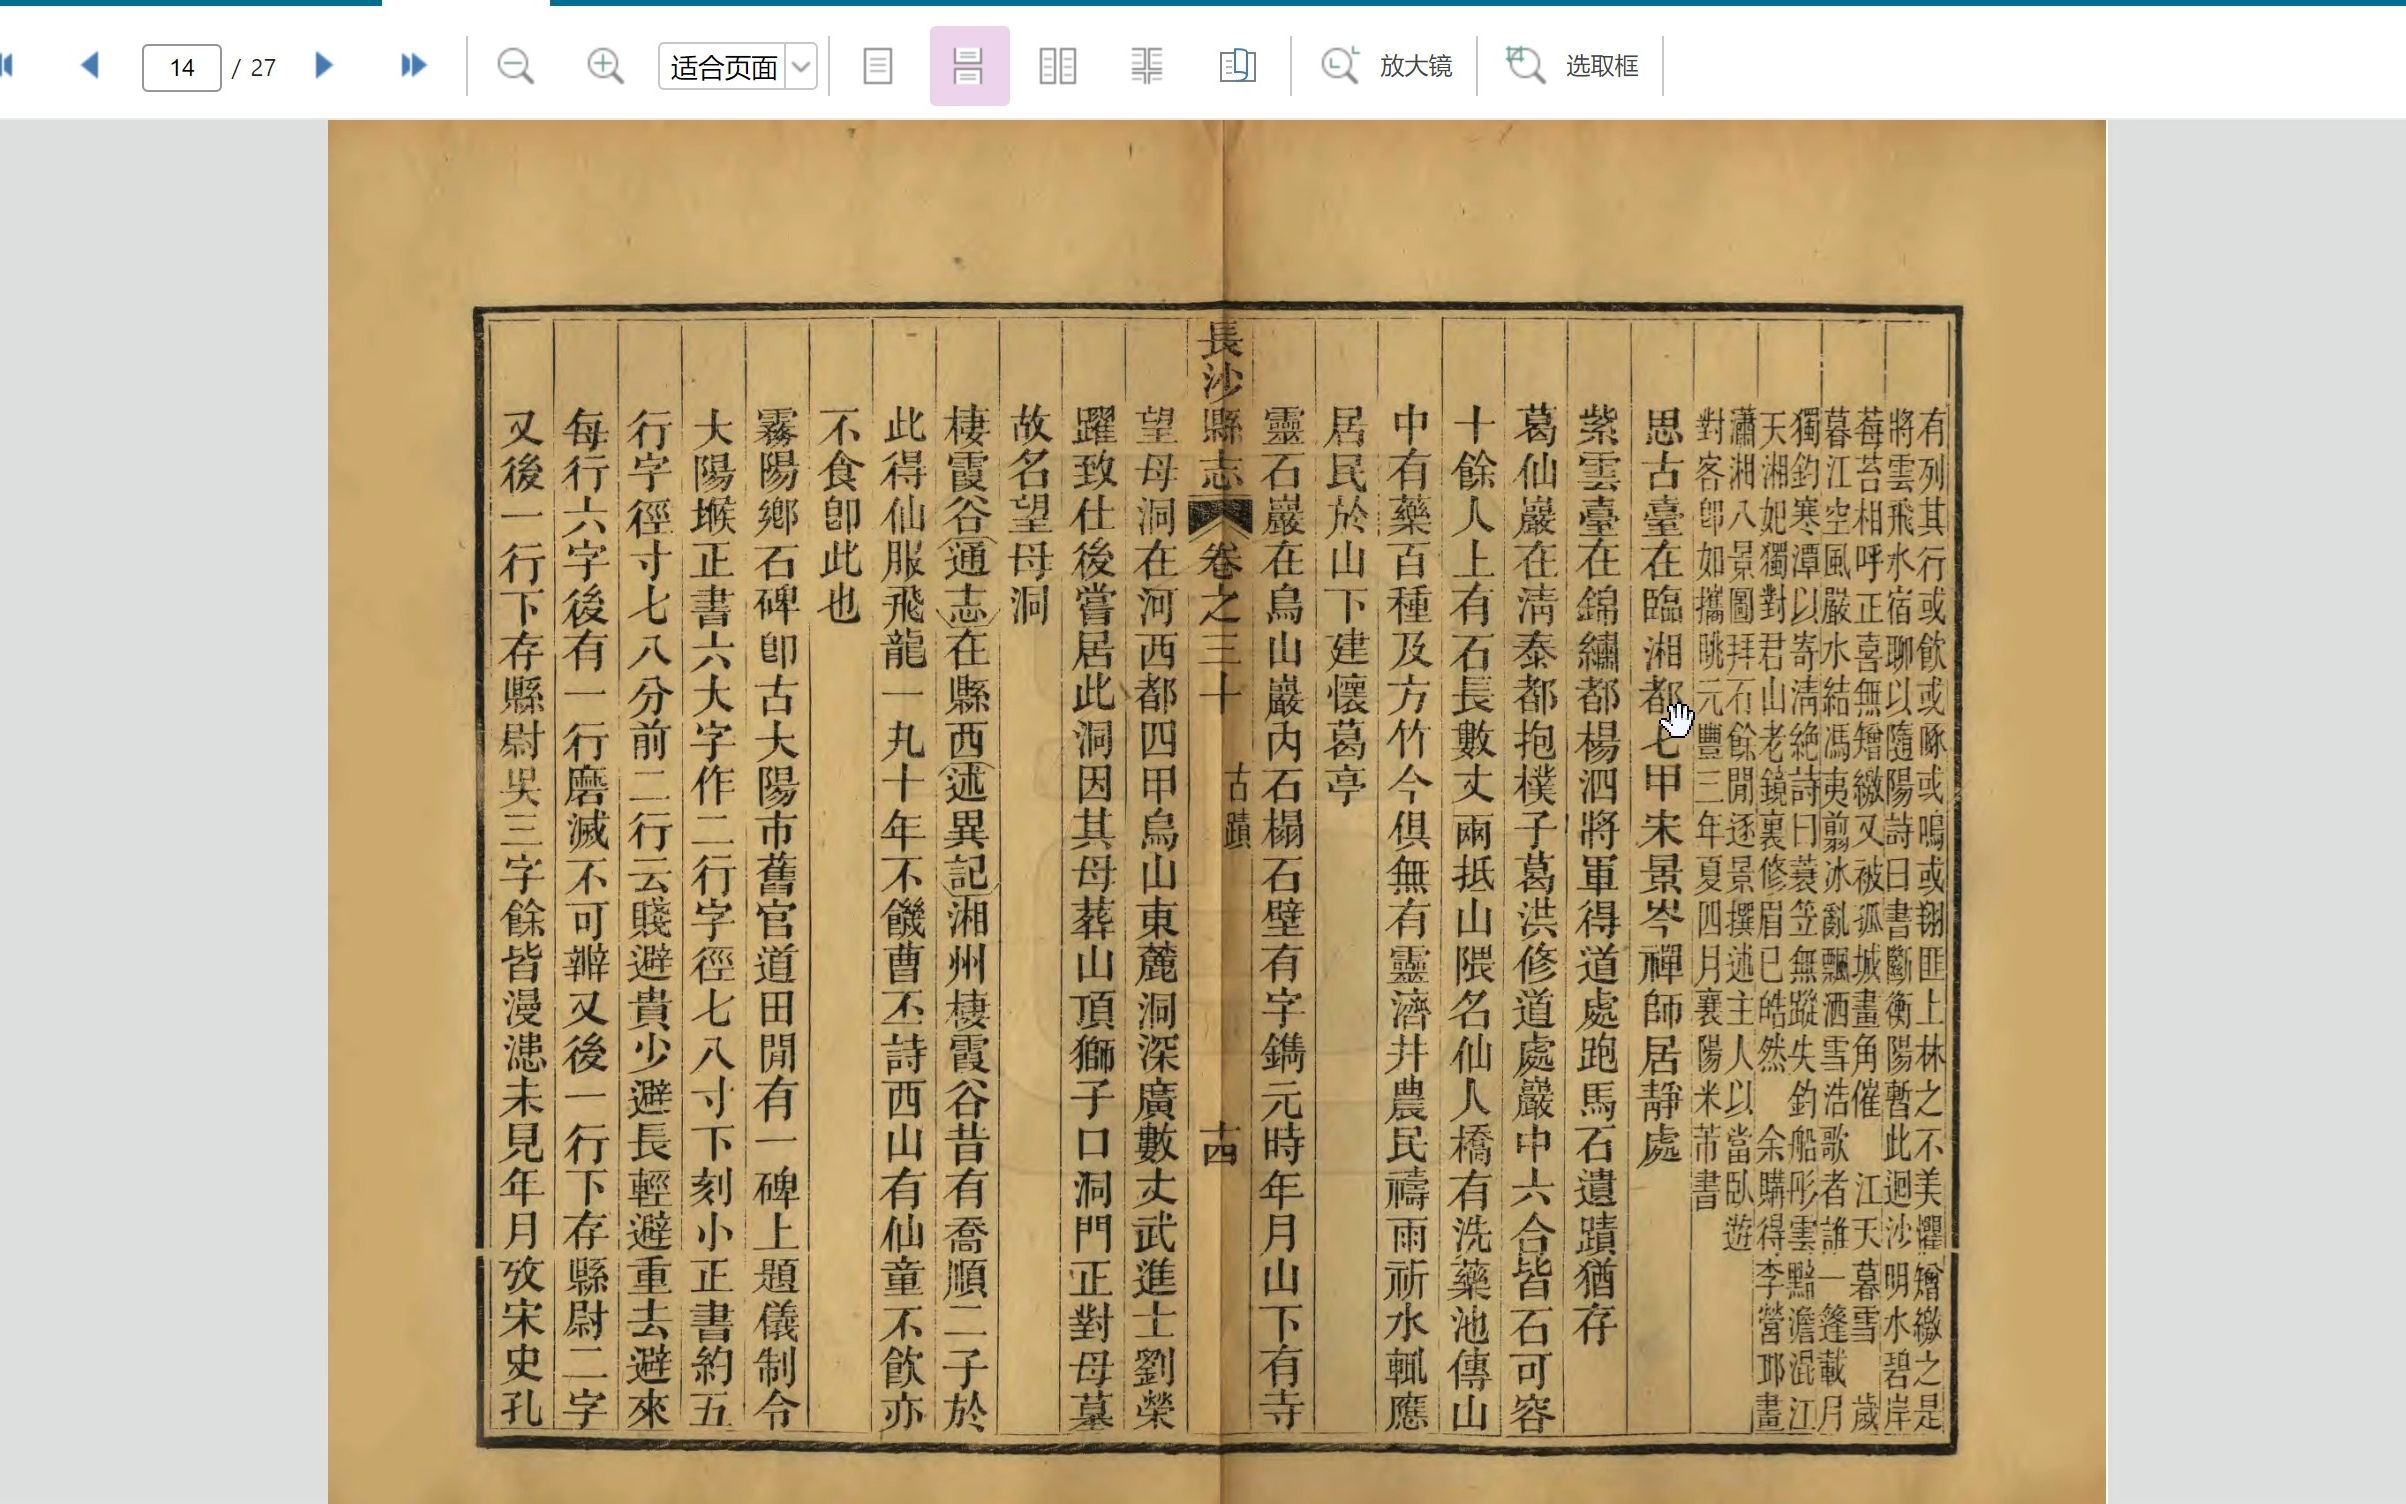 14 / 27
适合页面
放大镜
选取框
有列其行或飲或啄或鳴或翔匪上林之不美懼矰繳之是
將雲飛水宿聊以隨陽詩曰書斷衡陽暫此迴沙明水碧岸
莓苔相呼正喜無矰繳又被孤城畫角催 江天暮雪 歲
暮江空風嚴水結馮夷翦冰亂飄洒雪浩歌者誰一篷載月
獨釣寒潭以寄清絶詩曰蓑笠無蹤失釣船彤雲黯澹混江
天湘妃獨對君山老鏡裏修眉已皓然 余購得李營邱畫
瀟湘八景圖拜石餘閒逐景撰述主人以當臥遊
對客卽如攜眺元豐三年夏四月襄陽米芾書
思古臺在臨湘都七甲宋景岑禪師居靜處
紫雲臺在錦繡都楊泗將軍得道處跑馬石遺蹟猶存
葛仙巖在淸泰都抱樸子葛洪修道處巖中六合皆石可容
十餘人上有石長數丈兩抵山隈名仙人橋有洗藥池傳山
中有藥百種及方竹今俱無有靈濟井農民禱雨祈水輒應
居民於山下建懷葛亭
靈石巖在烏山巖內石榻石壁有字鐫元時年月山下有寺
長沙縣志 卷之三十 古蹟 十四
望母洞在河西都四甲烏山東麓洞深廣數丈武進士劉榮
躍致仕後嘗居此洞因其母葬山頂獅子口洞門正對母墓
故名望母洞
棲霞谷通志在縣西述異記湘州棲霞谷昔有喬順二子於
此得仙服飛龍一丸十年不饑曹丕詩西山有仙童不飮亦
不食卽此也
霧陽鄉石碑卽古大陽市舊官道田閒有一碑上題儀制令
大陽堠正書六大字作二行字徑七八寸下刻小正書約五
行字徑寸七八分前二行云賤避貴少避長輕避重去避來
每行六字後有一行磨滅不可辦又後一行下存縣尉二字
又後一行下存縣尉吳三字餘皆漫漶未見年月攷宋史孔